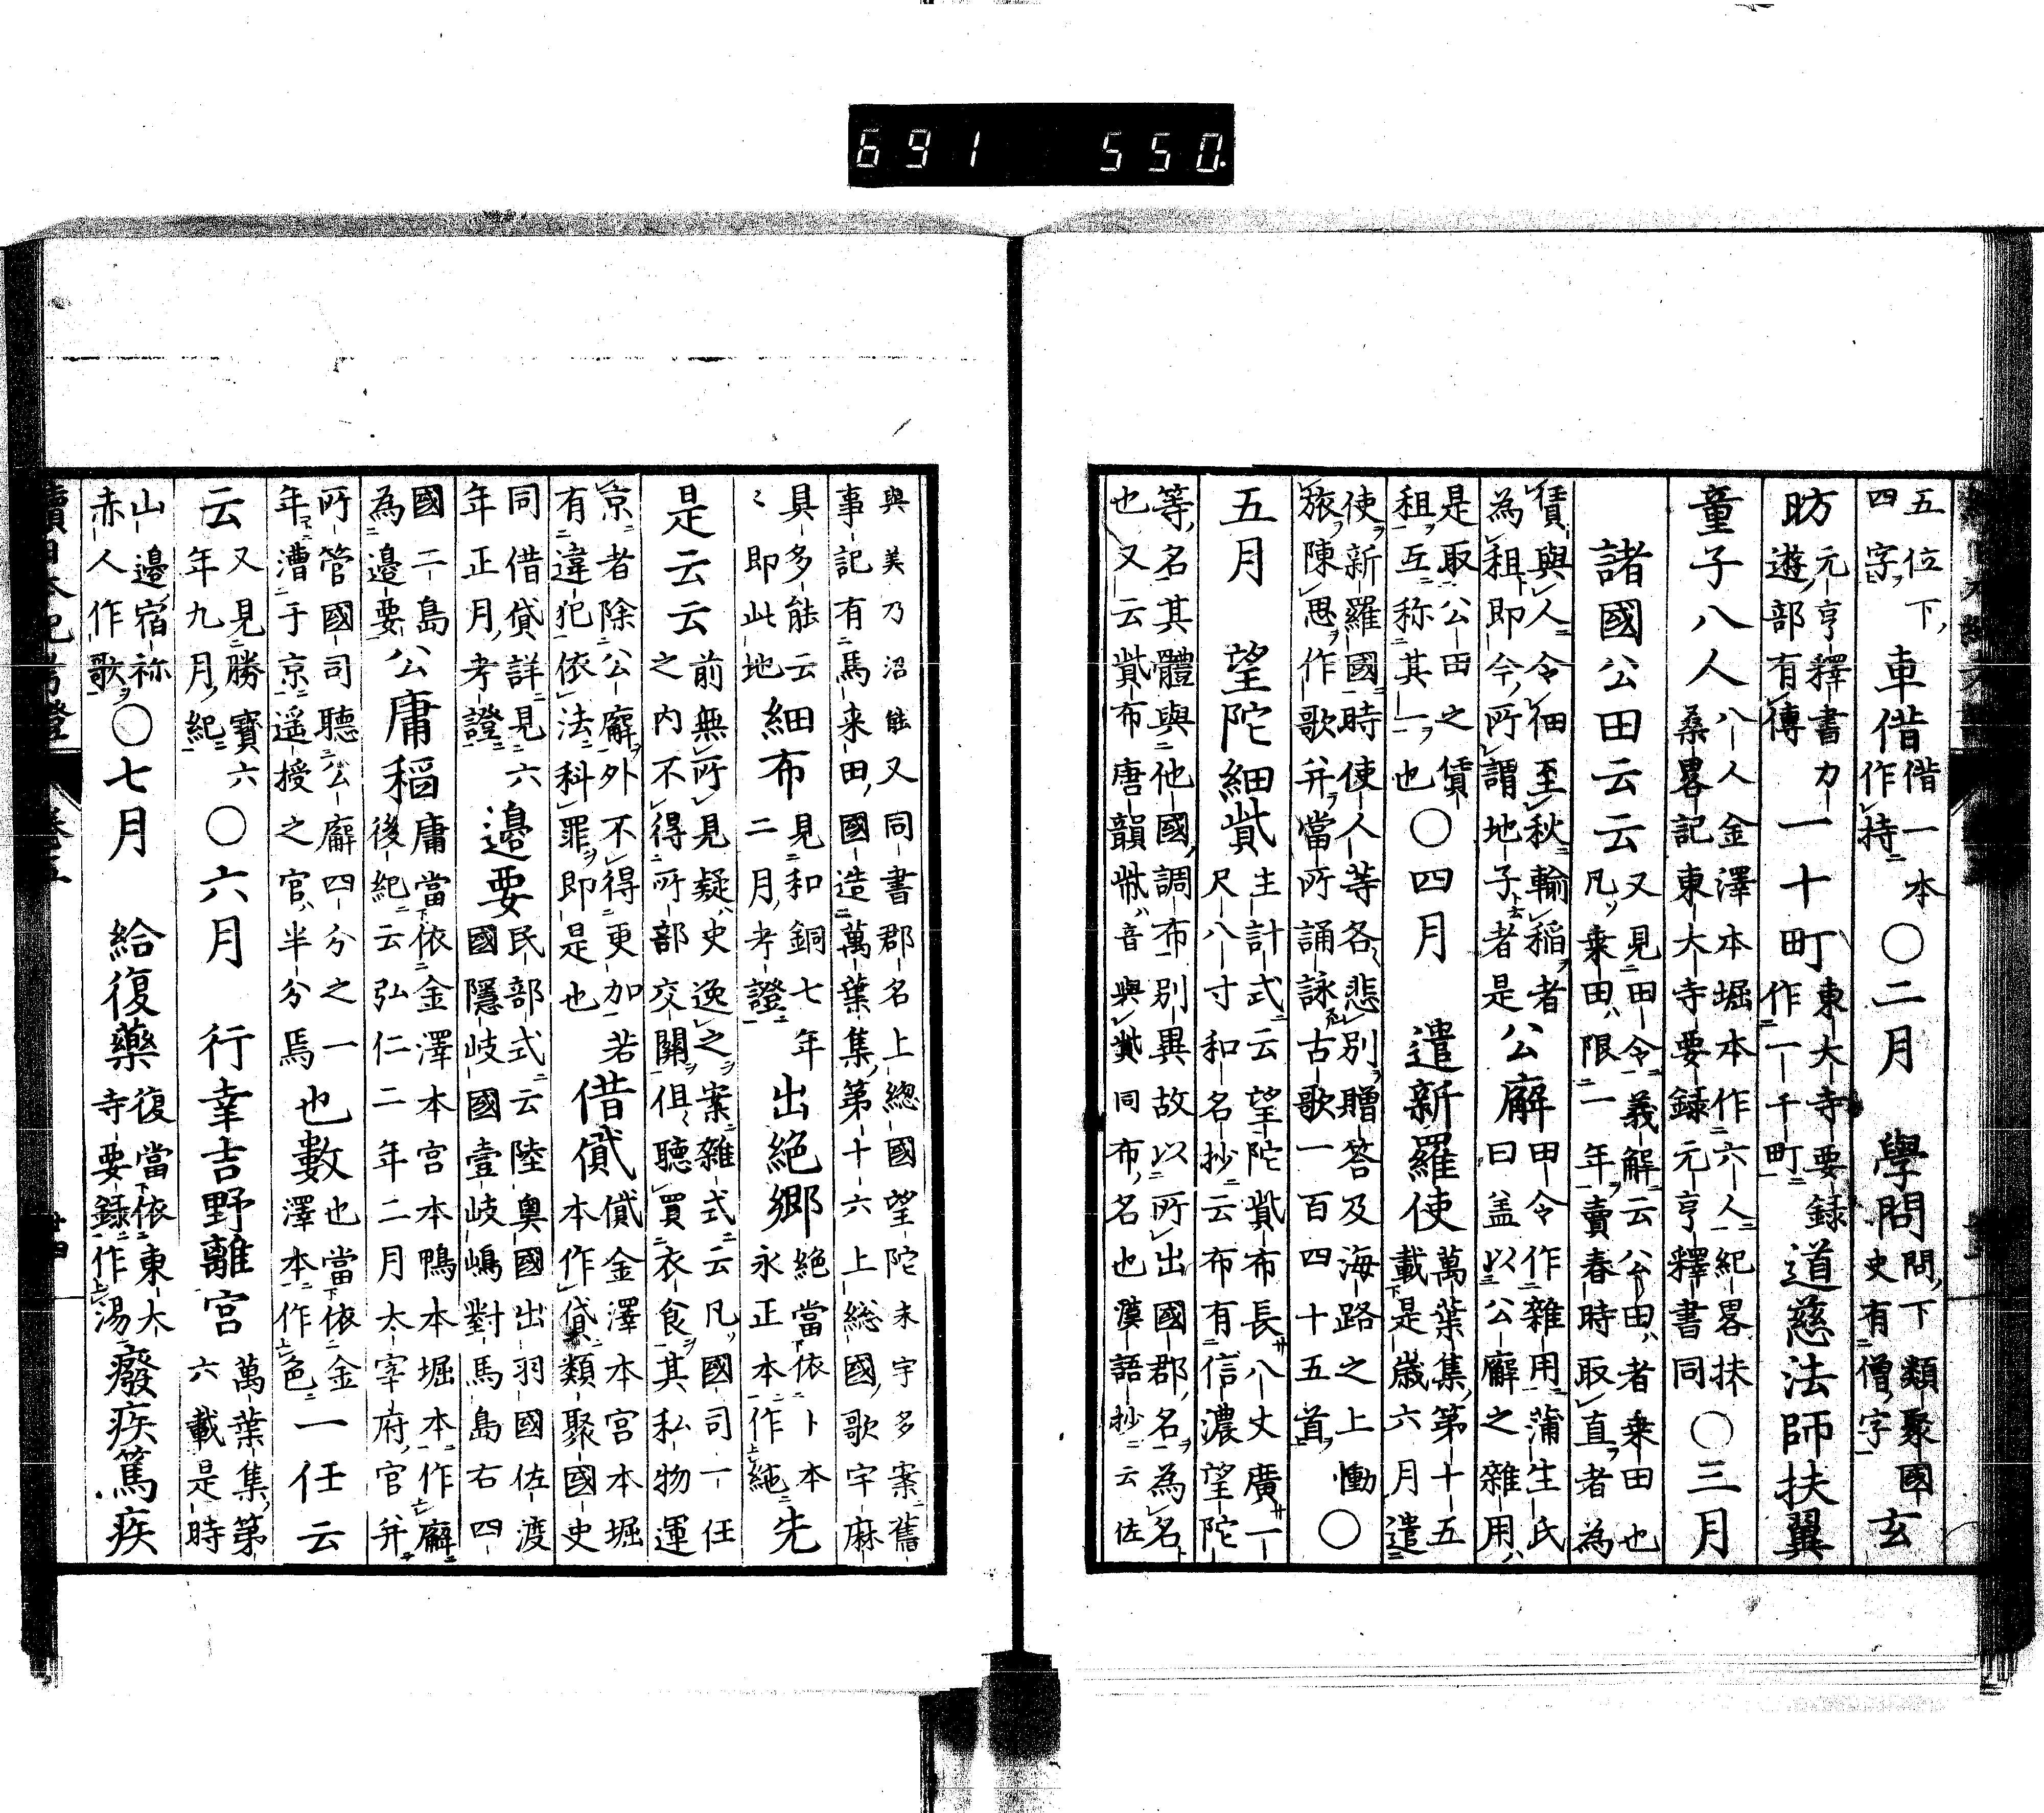 691 550
五位下、 車借 借一本
四字、 作持 〇二月 學問 問下類聚國史有僧字 玄
昉 元亨釋書力遊部有傳 一十町 東大寺要録作一千町 道慈法師扶翼
童子八人 八人金澤本堀本作六人紀畧扶桑畧記東大寺要録元亨釋書同 〇三月
諸國公田云云 又見田令義解云公田者乗田也凡乗田限一年賣春時取直者為
賃與人令佃至秋輸稲者為租即今所謂地子者是 公廨 田令作雜用蒲生氏曰盖以公廨之雜用
是取公田之賃租互称其一也 〇四月 遣新羅使 萬葉集第十五載是歳六月遣
使新羅國時使人等各悲別贈答及海路之上慟旅陳思作歌并當所誦詠古歌一百四十五首 〇
五月 望陀細貲 主計式云望陀貲布長八丈廣一尺八寸和名抄云布有信濃望陀
等名其體與他國調布別異故以所出國郡名為名也又云貲布唐韻㡀音與貲同布名也漢語抄云佐
與美乃沼能又同書郡名上總國望陀末宇多案舊事記有馬来田國造萬葉集第十六上総國歌宇麻
具多能云〻即此地 細布 見和銅七年二月考證 出絶郷 絶當依卜本永正本作絁 先
是云云 前無所見疑史逸之案雜式云凡國司一任之内不得所部交關但聽買衣食其私物運
京者除公廨外不得更加若有違犯依法科罪即是也 借貸 貸金澤本宮本堀本作貸類聚國史
同借貸詳見六年正月考證 邉要 民部式云陸奥國出羽國佐渡國隱岐國壹岐嶋對馬島右四
國二島為邉要 公廨稲 廨當依金澤本宮本鴨本堀本作廨後紀云弘仁二年二月太宰府官并
所管國司聽公廨四分之一年漕于京遥授之官半分焉 也數 也當依金澤本作色 一任云
云 又見勝寶六年九月紀 〇六月 行幸吉野離宮 萬葉集第六載是時
山邉宿祢赤人作歌 〇七月 給復藥 復當依東大寺要録作湯 癈疾篤疾
續日本紀考證 卷五